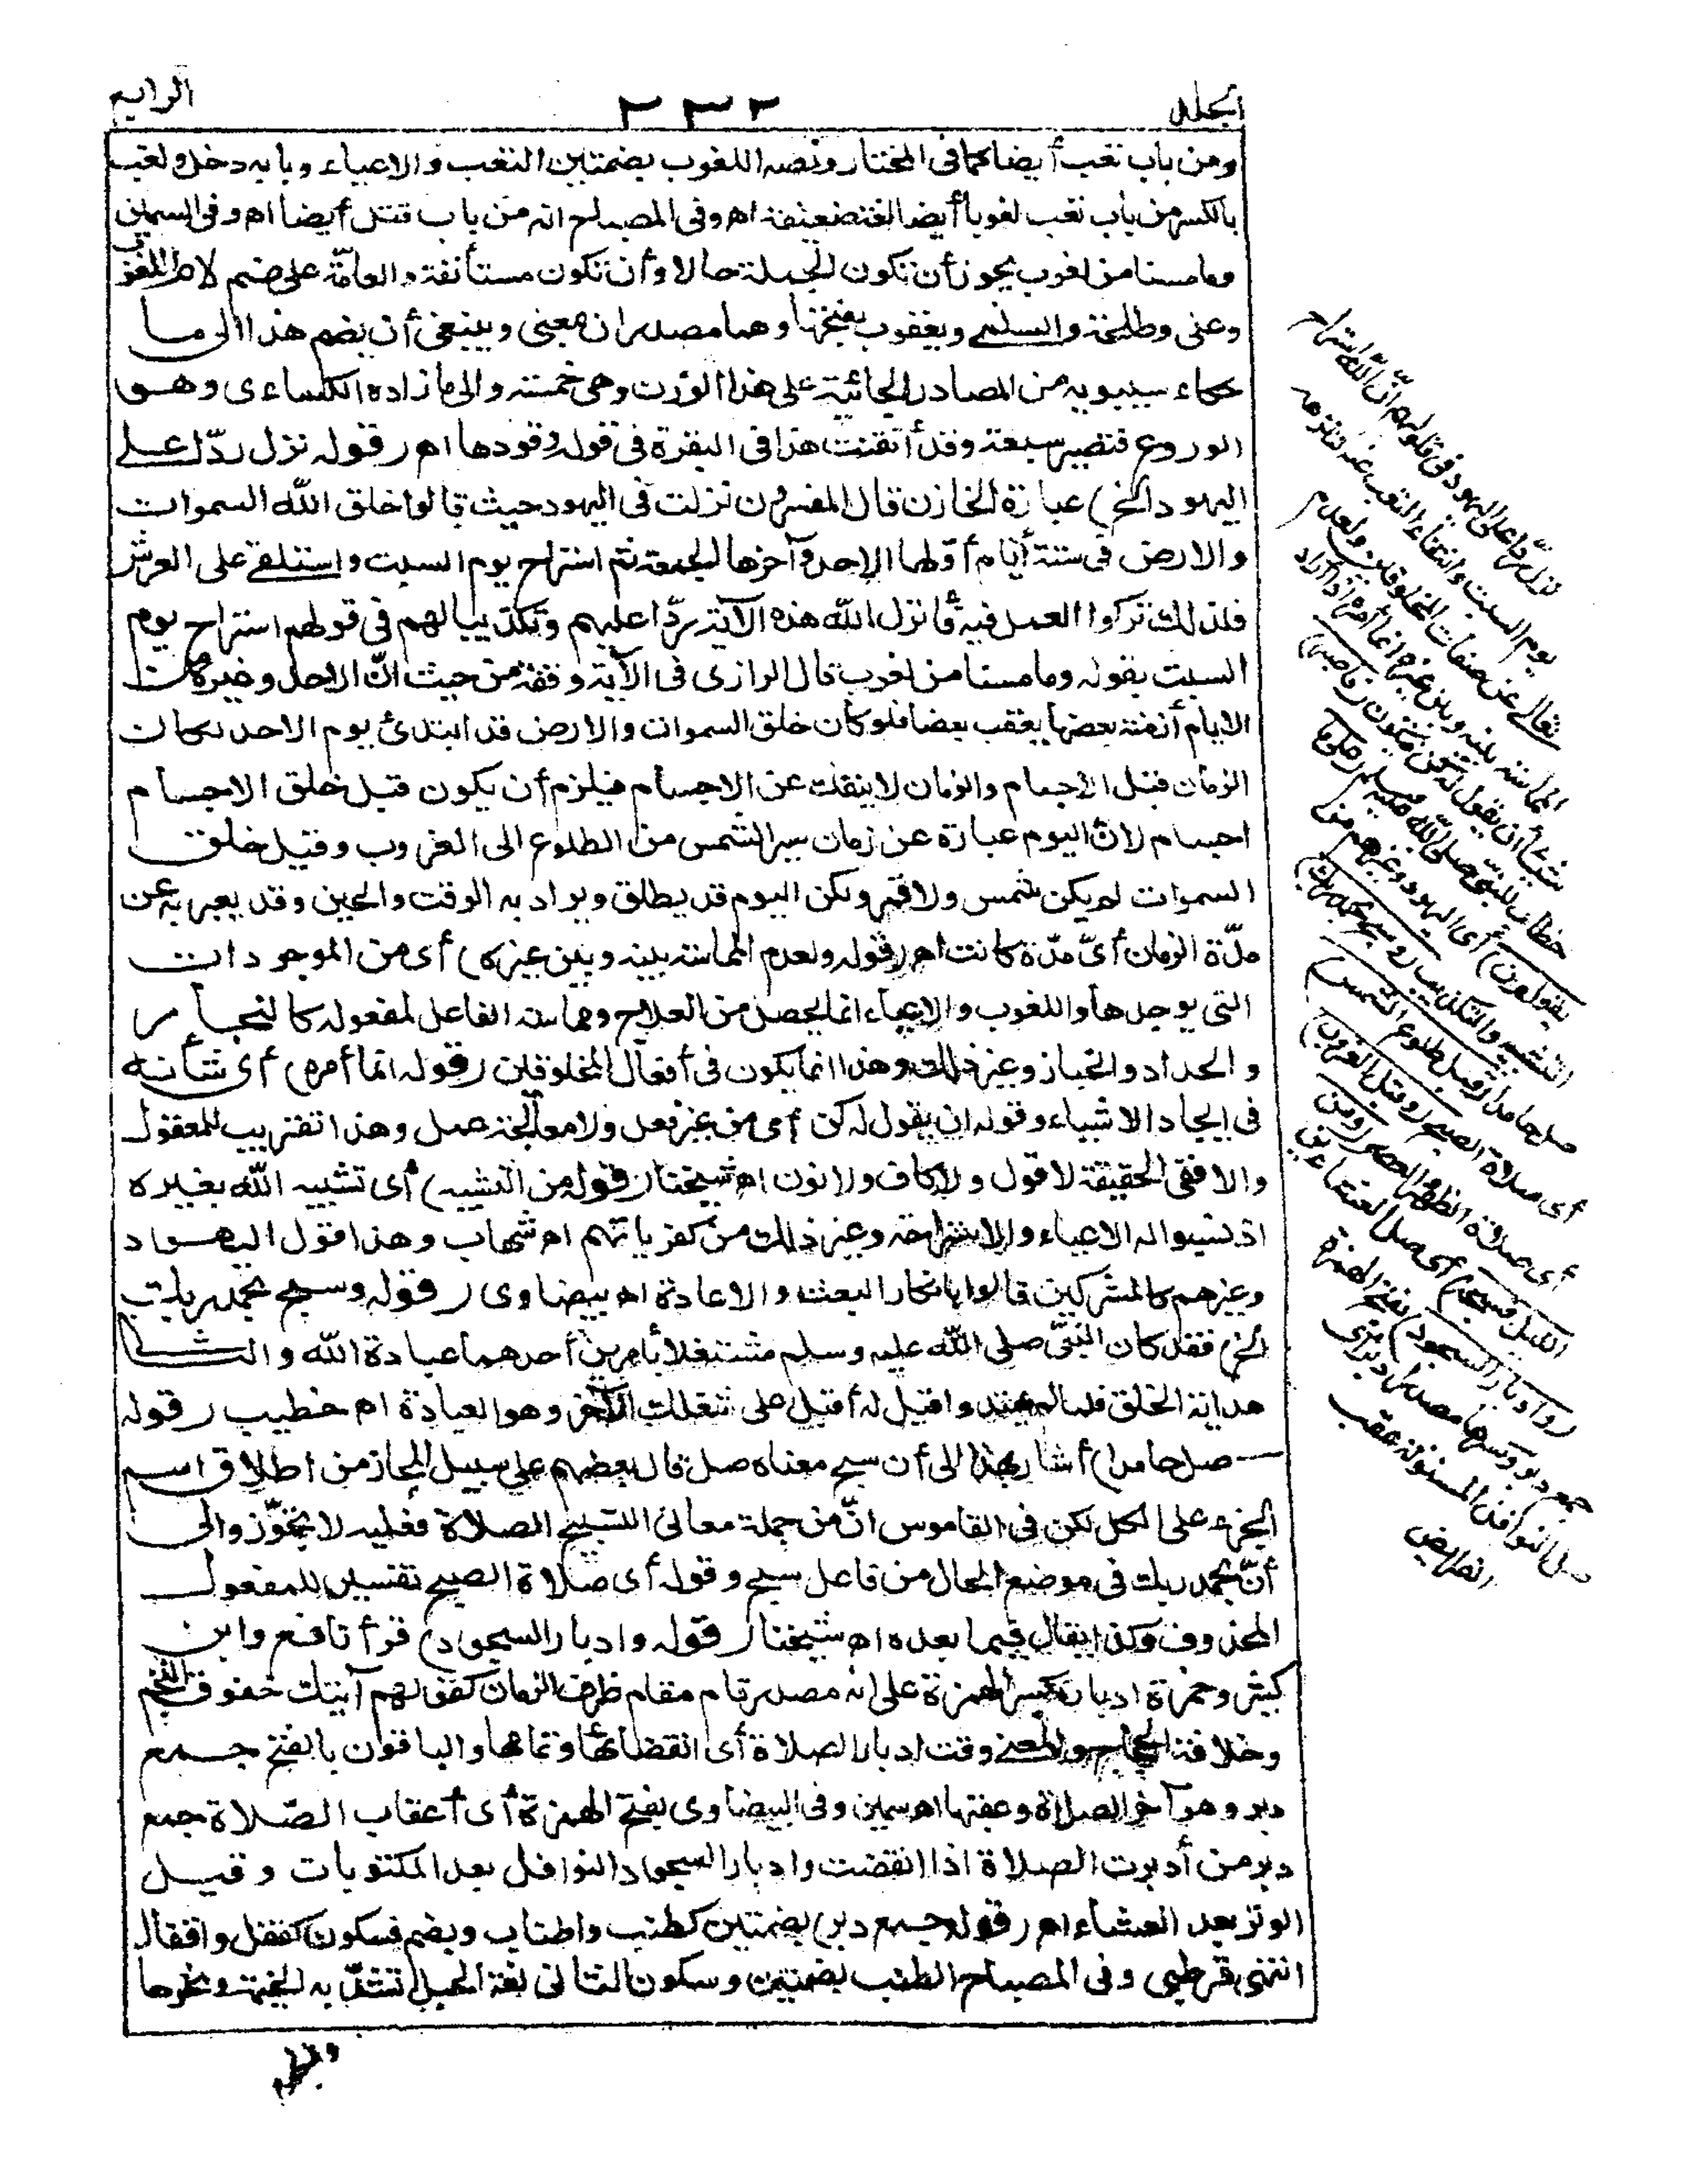 المجلد
٢٣٢
الرابع
ومن باب تعب أيضا كما في المختار ونصه اللغوب بضمتين التعب والاعياء وبابه دخل ولغب
بالكسر من باب تعب لغوبا أيضا لغة ضعيفة اه وفي المصباح انه من باب قتل أيضا اه وفي السمين
وما مسنا من لغوب يجوز أن تكون الجملة حالا وأن تكون مستأنفة والعامّة على ضم لام اللغوب
وعلى وطلحة والسلمي ويعقوب بفتحها وهما مصدران بمعنى وينبغي أن يضم هذا الى ما
حكاه سيبويه من المصادر الجائية على هذا الوزن وهي خمسة والى ما زاده الكسائى وهو
الوزوع فتصير سبعة وقد أتقنت هذا فى البقرة فى قوله وقودها اه (قوله نزل ردّا على
اليهود الخ) عبارة الخازن قال المفسرون نزلت فى اليهود حيث قالوا خلق الله السموات
والارض فى ستة أيام أوّلها الاحد وآخرها الجمعة ثم استراح يوم السبت واستلقى على العرش
فلذلك تركوا العمل فيه فأنزل الله هذه الآية ردّا عليهم وتكذيبا لهم فى قولهم استراح يوم
السبت بقوله وما مسنا من لغوب قال الرازى فى الآية وقفة من حيث انّ الاحد وغيره من
الايام أزمنة بعضها يعقب بعضا فلو كان خلق السموات والارض قد ابتدئ يوم الاحد لكان
الزمان قبل الاجسام والزمان لا ينفك عن الاجسام فيلزم أن يكون قبل خلق الاجسام
اجسام لانّ اليوم عبارة عن زمان سير الشمس من الطلوع الى الغروب وقبل خلق
السموات لم يكن شمس ولا قمر ولكن اليوم قد يطلق ويراد به الوقت والحين وقد يعبر به عن
مدّة الزمان أىّ مدّة كانت اه (قوله ولعدم المماسة بينه وبين غيره) أى من الموجودات
التى يوجدها واللغوب والاعياء انما يحصل من العلاج ومماسة الفاعل لمفعوله كالنجار
والحداد والخباز وغير ذلك وهذا انما يكون فى أفعال المخلوقين (قوله انما أمره) أى شأنه
فى ايجاد الاشياء وقوله ان يقول له كن أى من غير فعل ولا معالجة عمل وهذا تقريب للعقول
والا ففى الحقيقة لا قول ولا كاف ولا نون اه شيخنا (قوله من التشبيه) أى تشبيه الله بغيره
اذ نسبوا له الاعياء والاستراحة وغير ذلك من كفرياتهم اه شهاب وهذا قول اليهود
وغيرهم كالمشركين قالوا بانكار البعث والاعادة اه بيضاوى (قوله وسبح بحمد ربك
الخ) فقد كان النبىّ صلى الله عليه وسلم مشتغلا بأمرين أحدهما عبادة الله والثانى
هداية الخلق فلما لم يهتدوا قيل له أقبل على شغلك الآخر وهو العبادة اه خطيب (قوله
صل حامدا) أشار بهذا الى أن سبح معناه صل قال بعضهم على سبيل المجاز من اطلاق اسم
الجزء على الكل لكن فى القاموس انّ من جملة معانى التسبيح الصلاة فعليه لا تجوّز والى
أنّ بحمد ربك فى موضع الحال من فاعل سبح وقوله أى صلاة الصبح تفسير للمفعول
المحذوف وكذا يقال فيما بعده اه شيخنا (قوله وادبار السجود) قرأ نافع وابن
كثير وحمزة ادبار بكسر الهمزة على انه مصدر قام مقام ظرف الزمان كقولهم آتيتك خفوق النجم
وخلافة الحجاج والمعنى وقت ادبار الصلاة أى انقضائها وتمامها والباقون بالفتح جمع
دبر وهو آخر الصلاة وعقبها اه سمين وفى البيضاوى بفتح الهمزة أى أعقاب الصّلاة جمع
دبر من أدبرت الصلاة اذا انقضت وادبار السجود النوافل بعد المكتوبات وقيل
الوتر بعد العشاء اه (قوله جمع دبر) بضمتين كطنب واطناب وبضم فسكون كقفل واقفال
انتهى قرطبى وفى المصباح الطنب بضمتين وسكون الثانى لغة الحبل تشدّ به الخيمة ونحوها
نزل ردّا على اليهود فى قولهم انّ الله استراح
يوم السبت وانتفاء التعب عنه لتنزهه
تعالى عن صفات المخلوقين ولعدم
المماسة بينه وبين غيره انما أمره اذا أراد
شيئا أن يقول له كن فيكون (فاصبر)
خطاب للنبى صلى الله عليه وسلم (على ما
يقولون) أى اليهود وغيرهم من
التشبيه والتكذيب (وسبح بحمد ربك)
صل حامدا (قبل طلوع الشمس)
أى صلاة الصبح (وقبل الغروب)
أى صلاة الظهر والعصر (ومن
الليل فسبحه) أى صل العشاءين
(وادبار السجود) بفتح الهمزة
جمع دبر وكسرها مصدر أدبر أى
صل النوافل المسنونة عقب
الفرائض